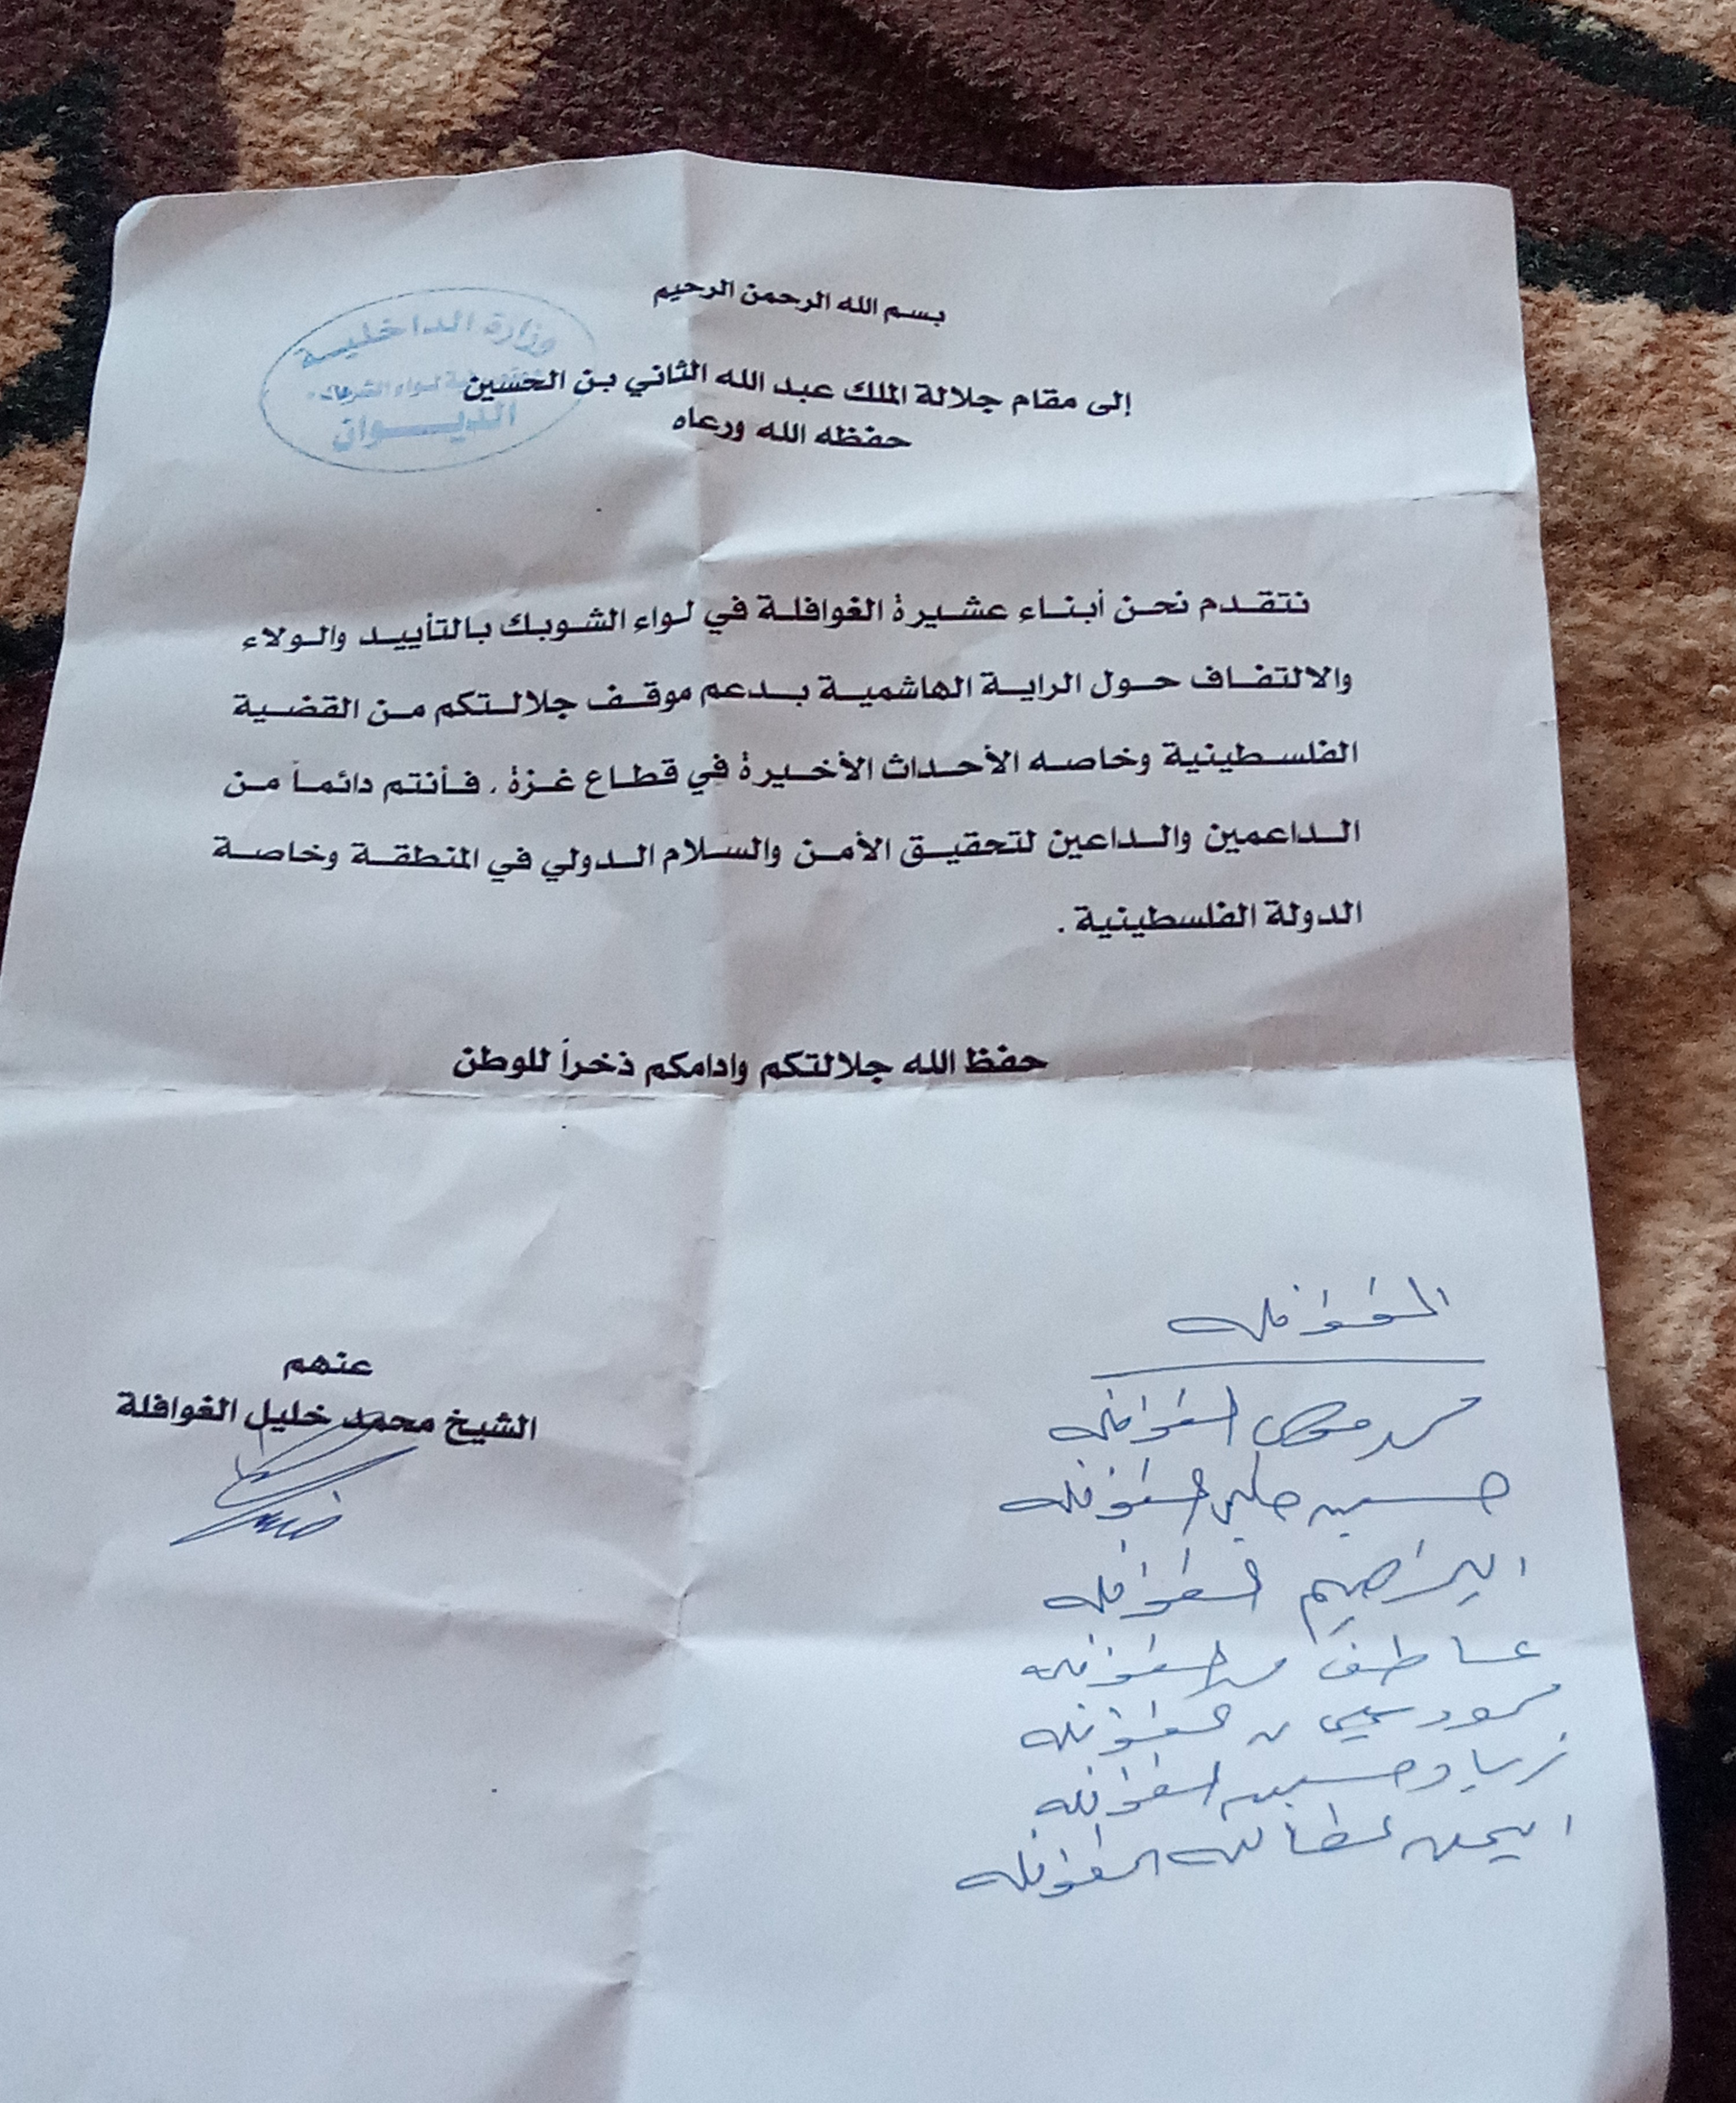 بسم الله الرحمن الرحيم
وزارة الداخلية
لواء الشوبك
الديوان
إلى مقام جلالة الملك عبد الله الثاني بن الحسين
حفظه الله ورعاه
نتقدم نحن أبناء عشيرة الغوافلة في لواء الشوبك بالتأييد والولاء
والالتفاف حول الراية الهاشمية بدعم موقف جلالتكم من القضية
الفلسطينية وخاصه الأحداث الأخيرة في قطاع غزة . فأنتم دائماً من
الداعمين والداعين لتحقيق الأمن والسلام الدولي في المنطقة وخاصة
الدولة الفلسطينية .
حفظ الله جلالتكم وادامكم ذخراً للوطن
عنهم
الشيخ محمد خليل الغوافلة
الغوافله
محمد عوض الغوافله
حسين خليل الغوافله
ابراهيم الغوافله
عاطف محمد الغوافله
محمود الغوافله
زياد حسين الغوافله
ايمن عطا الله الغوافله